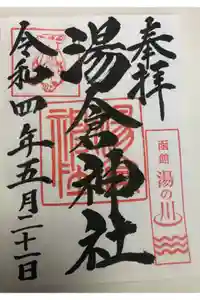 奉拝
函館
湯の川
湯倉神社
令和四年五月二十一日